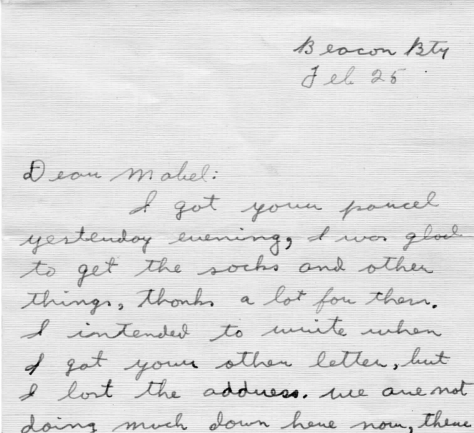 Beacon Bty
Feb 25
Dear Mabel:
I got your parcel
yesterday evening, I was glad
to get the socks and other
things, thanks a lot for them.
I intended to write when
I got your other letter, but
I lost the address. we are not
doing much down here now, there